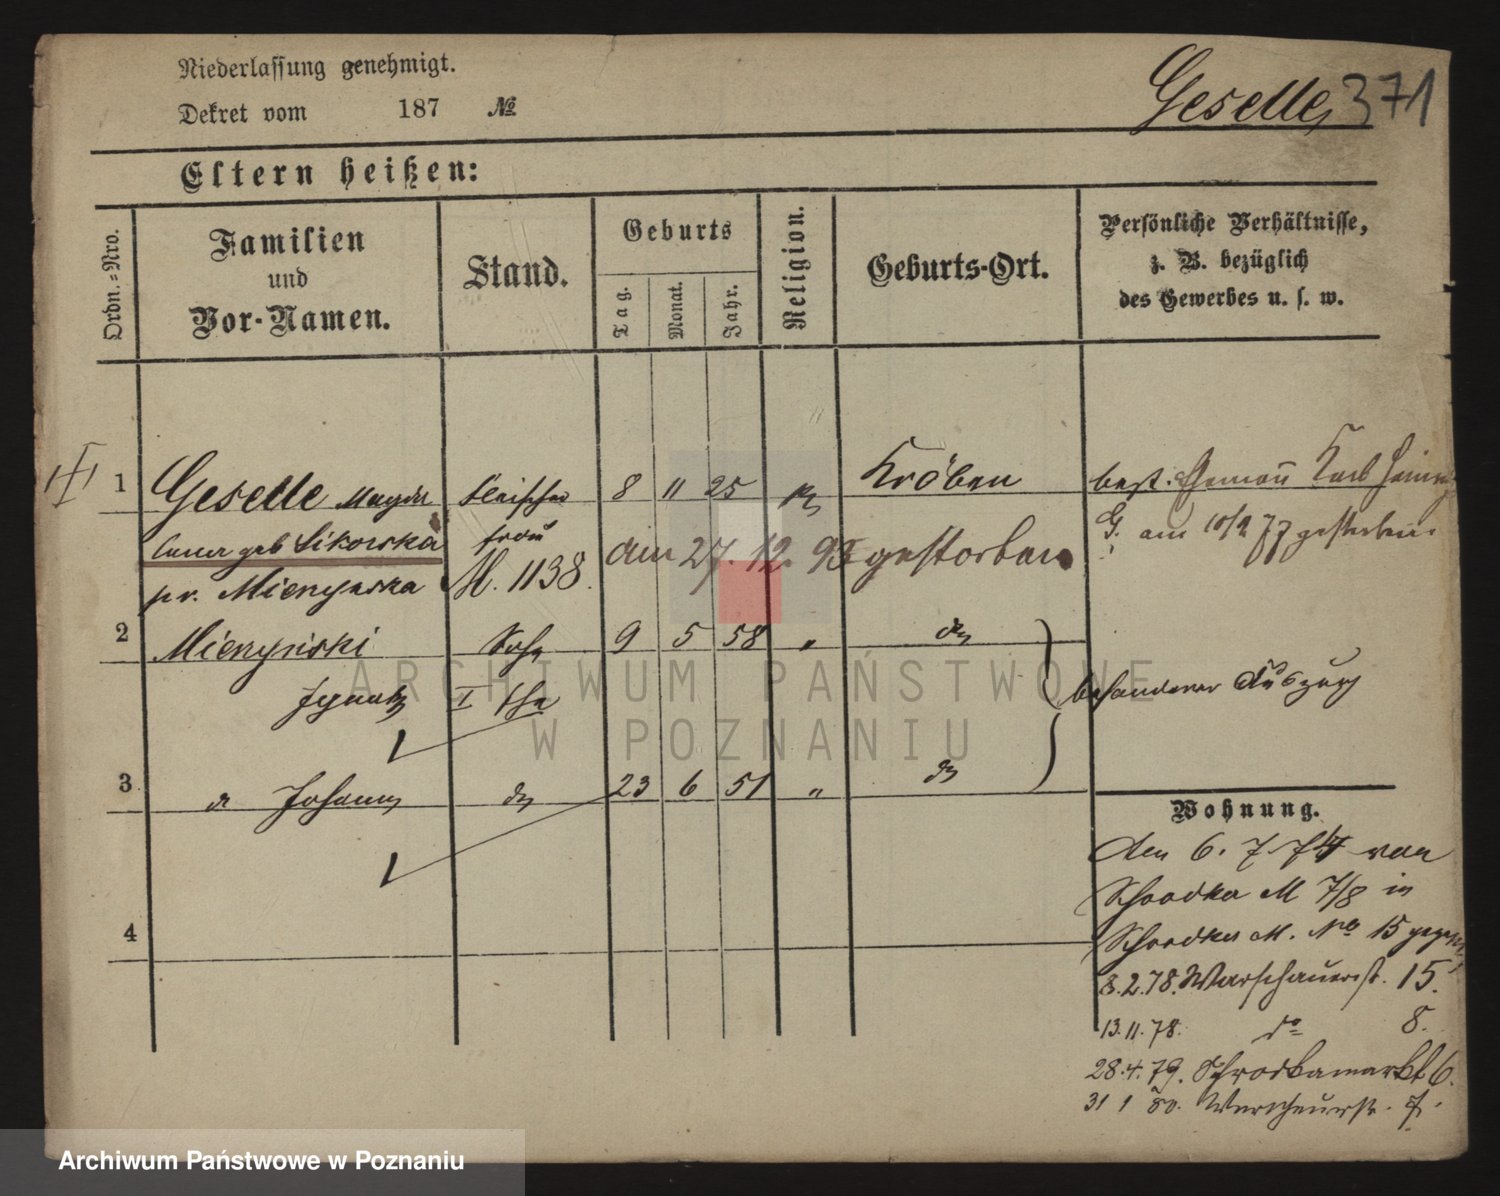 Niederlassung genehmigt.
Dekret vom 187 №
Geselle, 371
Eltern heißen:
Ordn.-Nro.
Familien
und
Vor-Namen.
Stand.
Geburts
Tag.
Monat.
Jahr.
Religion.
Geburts-Ort.
Persönliche Verhältnisse,
z. B. bezüglich
des Gewerbes u. s. w.
1 Geselle Magda 8 11 25 Kröben
lena geb Sikorska frau
pr. Mienynska M. 1138.
am 27. 12. 95 gestorben
Karl
G. am 10/2 77 gestorben
2 Mienynski Sohn 9 5 58 "
Ignatz I Ehe
besonderer Auszug
3 Johann 23 6 51 "
4
Wohnung.
den 6. 7. 74 von
Schrodka M 7/8 in
Schrodka M. No 15
8.2.78. Warschauerst. 15.
13.11.78. do 8.
28.4.79. Schrodkamarkt 6.
31 1 80. Warschauerstr. 7.
ARCHIWUM PAŃSTWOWE
W POZNANIU
Archiwum Państwowe w Poznaniu